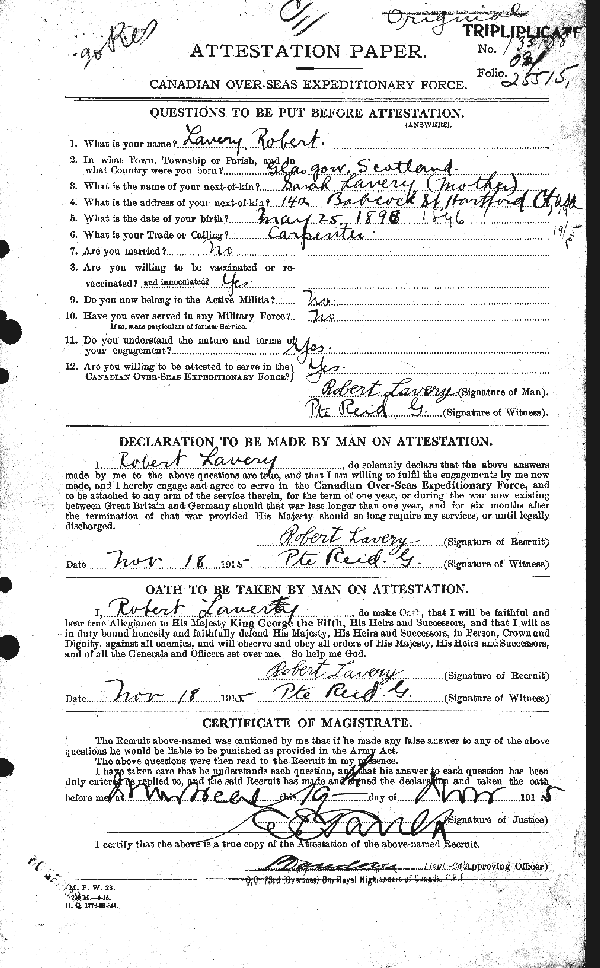 Original
TRIPLIPLICATE
ATTESTATION PAPER.
No.
Folio. 25515,
CANADIAN OVER-SEAS EXPEDITIONARY FORCE.
QUESTIONS TO BE PUT BEFORE ATTESTATION.
(ANSWERS).
1. What is your name? Lavery Robert.
2. In what Town, Township or Parish, and in
what Country were you born? Glasgow, Scotland
3. What is the name of your next-of-kin? Sarah Lavery (mother)
4. What is the address of your next-of-kin? 142 Babcock St Hartford
5. What is the date of your birth? May 25 1896 1896
6. What is your Trade or Calling? Carpenter.
7. Are you married? no
8. Are you willing to be vaccinated or re-
vaccinated? and inoculated? Yes
9. Do you now belong to the Active Militia? no
10. Have you ever served in any Military Force? no
If so, state particulars of former Service.
11. Do you understand the nature and terms of
your engagement? Yes.
12. Are you willing to be attested to serve in the
CANADIAN OVER-SEAS EXPEDITIONARY FORCE? Yes.
Robert Lavery (Signature of Man).
Pte Reid G. (Signature of Witness).
DECLARATION TO BE MADE BY MAN ON ATTESTATION.
I, Robert Lavery, do solemnly declare that the above answers
made by me to the above questions are true, and that I am willing to fulfil the engagements by me now
made, and I hereby engage and agree to serve in the Canadian Over-Seas Expeditionary Force, and
to be attached to any arm of the service therein, for the term of one year, or during the war now existing
between Great Britain and Germany should that war last longer than one year, and for six months after
the termination of that war provided His Majesty should so long require my services, or until legally
discharged.
Robert Lavery (Signature of Recruit)
Date Nov 18 1915 Pte Reid. G. (Signature of Witness)
OATH TO BE TAKEN BY MAN ON ATTESTATION.
I, Robert Laverty, do make Oath, that I will be faithful and
bear true Allegiance to His Majesty King George the Fifth, His Heirs and Successors, and that I will as
in duty bound honestly and faithfully defend His Majesty, His Heirs and Successors, in Person, Crown and
Dignity, against all enemies, and will observe and obey all orders of His Majesty, His Heirs and Successors,
and of all the Generals and Officers set over me. So help me God.
Robert Lavery (Signature of Recruit)
Date Nov 18 1915 Pte Reid G. (Signature of Witness)
CERTIFICATE OF MAGISTRATE.
The Recruit above-named was cautioned by me that if he made any false answer to any of the above
questions he would be liable to be punished as provided in the Army Act.
The above questions were then read to the Recruit in my presence.
I have taken care that he understands each question, and that his answer to each question has been
duly entered as replied to, and the said Recruit has made and signed the declaration and taken the oath
before me, at Montreal this 19 day of Nov 1915
(Signature of Justice)
I certify that the above is a true copy of the Attestation of the above-named Recruit.
(Approving Officer)
O.C. 73rd (Overseas) Bn. Royal Highlanders of Canada, C.E.F.
M. F. W. 23.